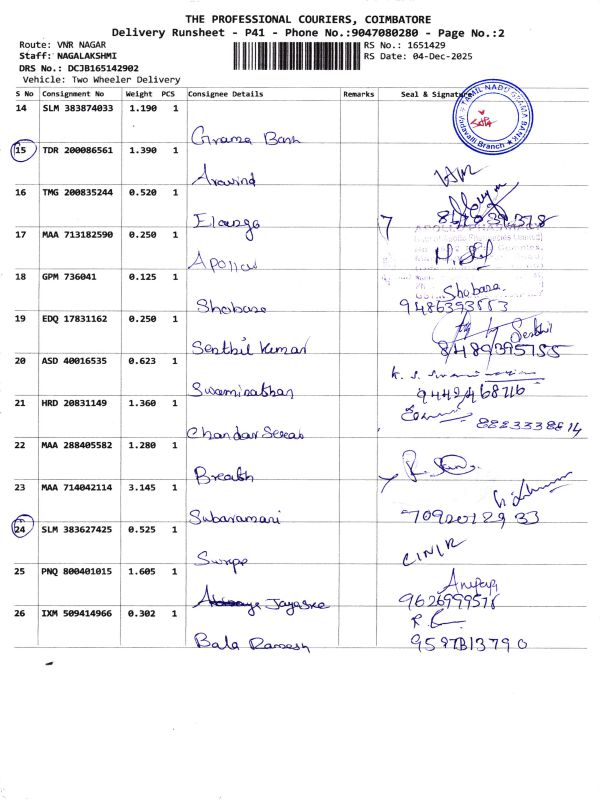 THE PROFESSIONAL COURIERS, COIMBATORE
Delivery Runsheet - P41 - Phone No.:9047080280 - Page No.:2
Route: VNR NAGAR
RS No.: 1651429
Staff: NAGALAKSHMI
RS Date: 04-Dec-2025
DRS No.: DCJB165142902
Vehicle: Two Wheeler Delivery
S No Consignment No Weight PCS Consignee Details Remarks Seal & Signature
14 SLM 383874033 1.190 1
Grama Bank
TAMIL NADU GRAMA BANK
Vadavalli Branch
15 TDR 200086561 1.390 1
Aravind
16 TMG 200835244 0.520 1
17 MAA 713182590 0.250 1
18 GPM 736041 0.125 1
Shobase
Shobase.
19 EDQ 17831162 0.250 1
Senthil Kumar
Senthil
20 ASD 40016535 0.623 1
21 HRD 20831149 1.360 1
8823338814
22 MAA 288405582 1.280 1
23 MAA 714042114 3.145 1
Subaramani
24 SLM 383627425 0.525 1
25 PNQ 800401015 1.605 1
Jayasree
26 IXM 509414966 0.302 1
Bala Ramesh